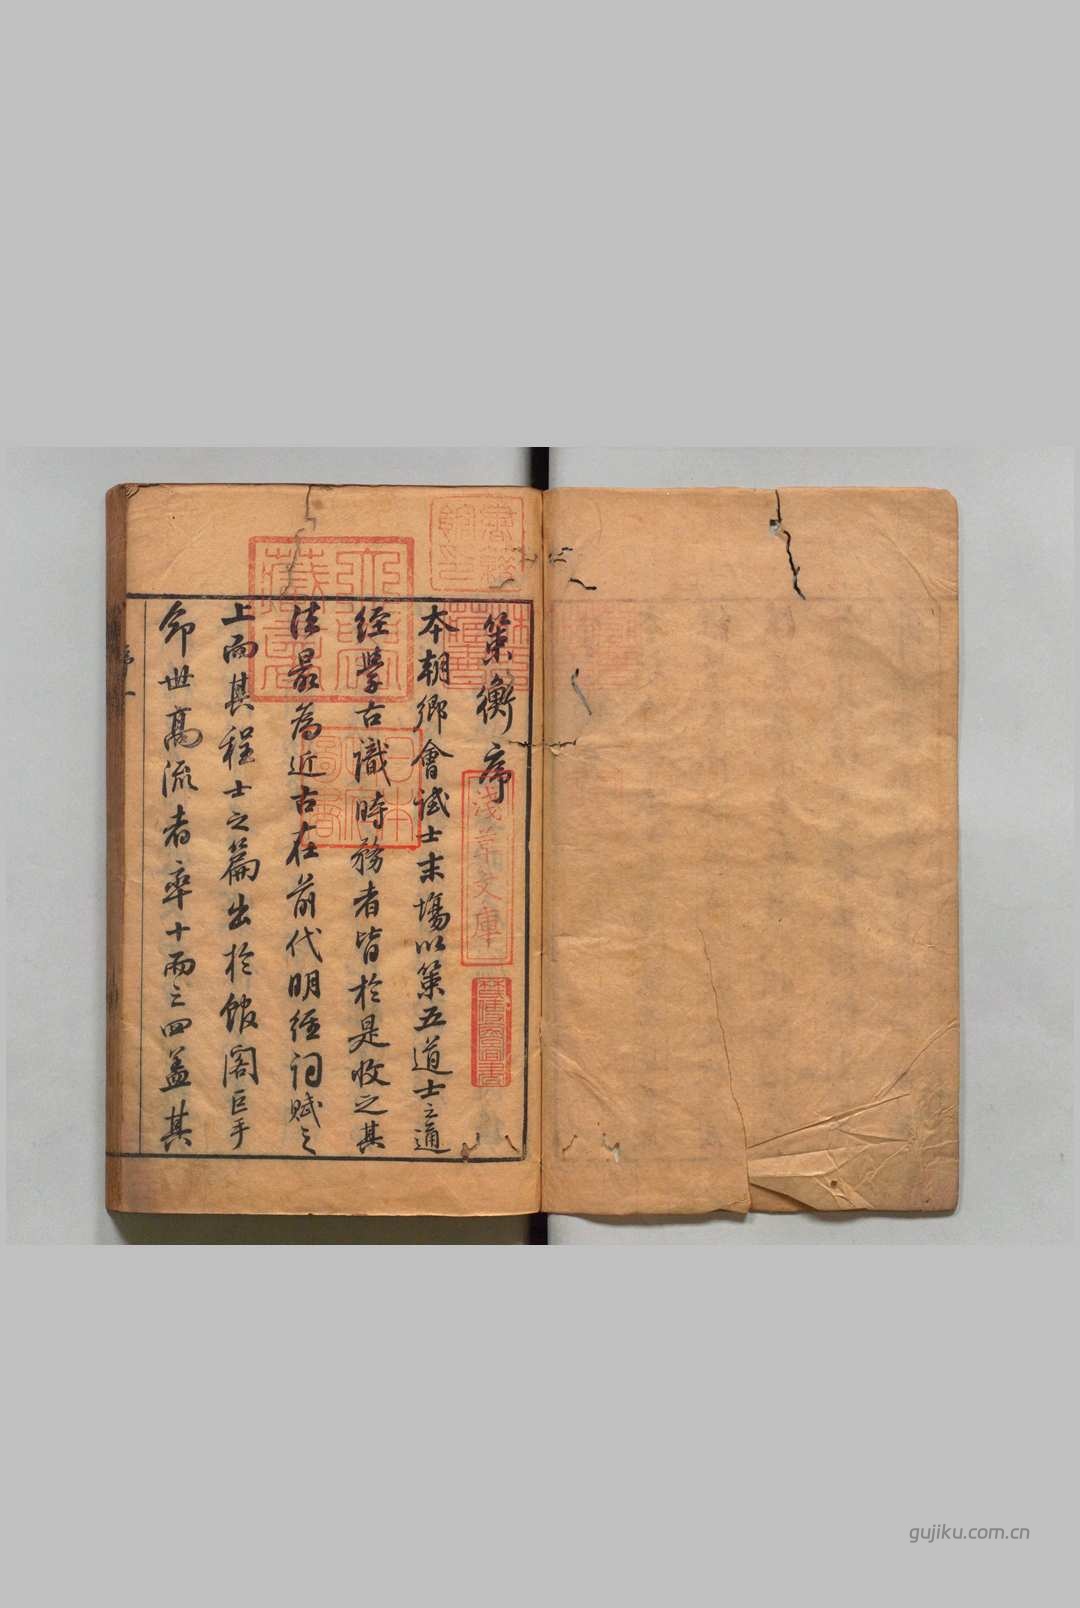 策衡序
本朝鄉會試士末場以策五道士之通
經學古識時務者皆於是收之其
法最為近古在前代明經詞賦之
上而其程士之篇出於館閣巨手
命世髙流者率十而三四蓋其
序
一
淺草文庫
日本
圖
藏書
書籍
館印
圖書
gujiku.com.cn